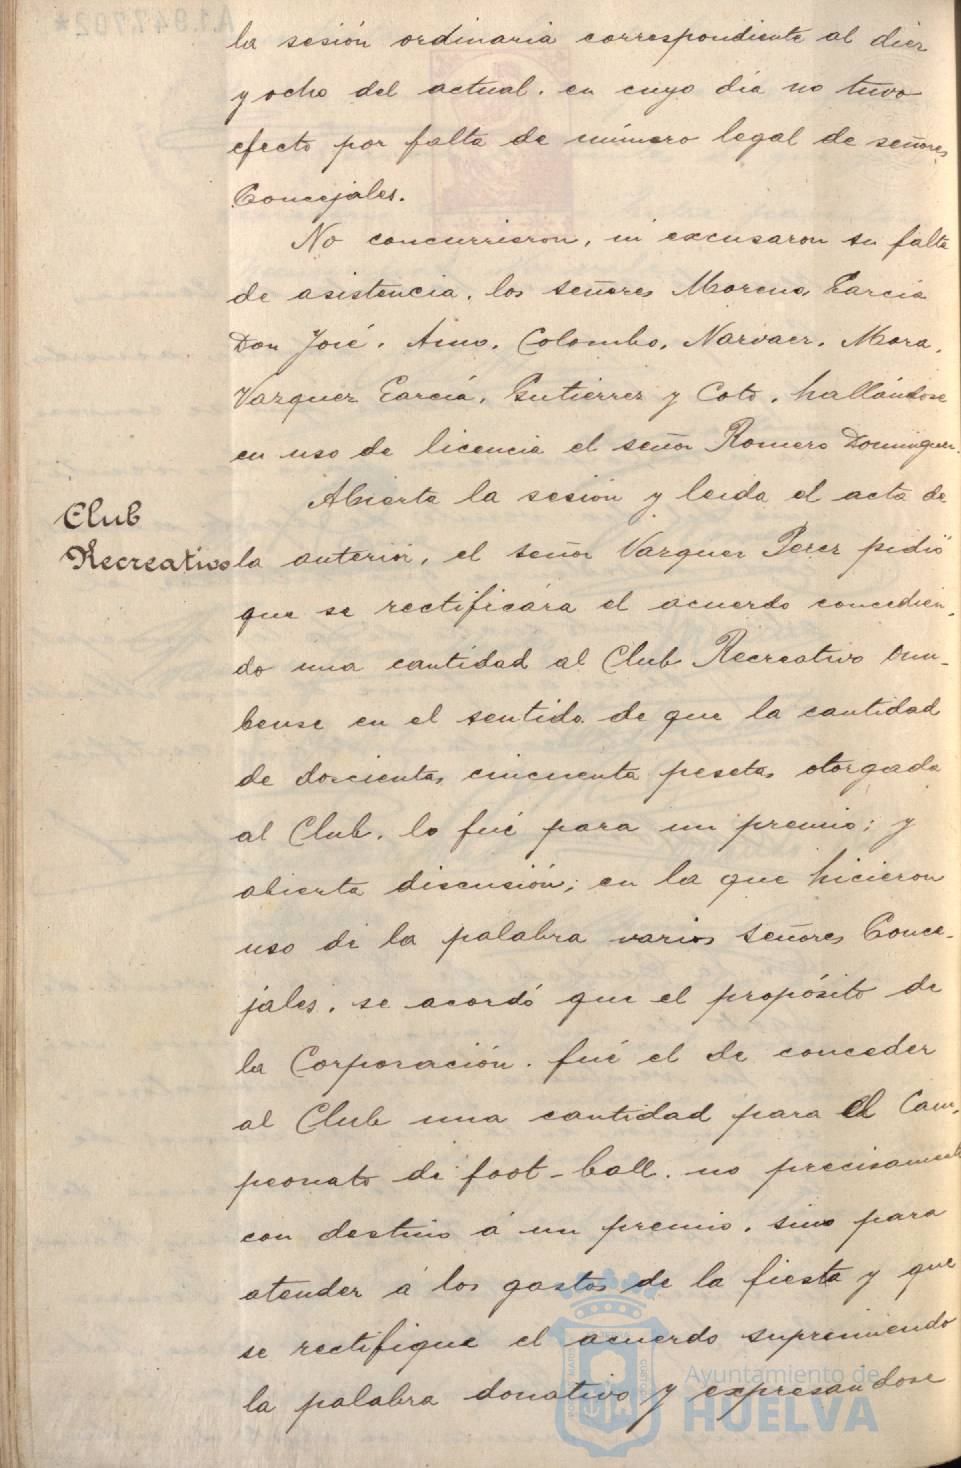 la sesión ordinaria correspondiente al diez
y ocho del actual. en cuyo dia no tuvo
efecto por falta de número legal de señores
Concejales.
No concurrieron, ni excusaron su falta
de asistencia, los señores Moreno, Garcia
Don José, , Colombo, Narvaez, Mora,
Vazquez García, Gutierrez y Coto, hallándose
en uso de licencia el señor Romero Dominguez.
Abierta la sesión y leida el acta de
Club
Recreativo
la anterior, el señor Vazquez Perez pidió
que se rectificára el acuerdo concedien-
do una cantidad al Club Recreativo Onu-
bense en el sentido de que la cantidad
de doscientas cincuenta pesetas otorgada
al Club, lo fué para un premio; y
abierta discusión; en la que hicieron
uso de la palabra varios señores Conce-
jales, se acordó que el propósito de
la Corporación. fué el de conceder
al Club una cantidad para el Cam-
peonato de foot-ball, no precisamente
con destino á un premio, sino para
atender á los gastos de la fiesta y que
se rectifique el acuerdo suprimiendo
la palabra donativo y expresandose
Ayuntamiento de
HUELVA
A.1.947.702*